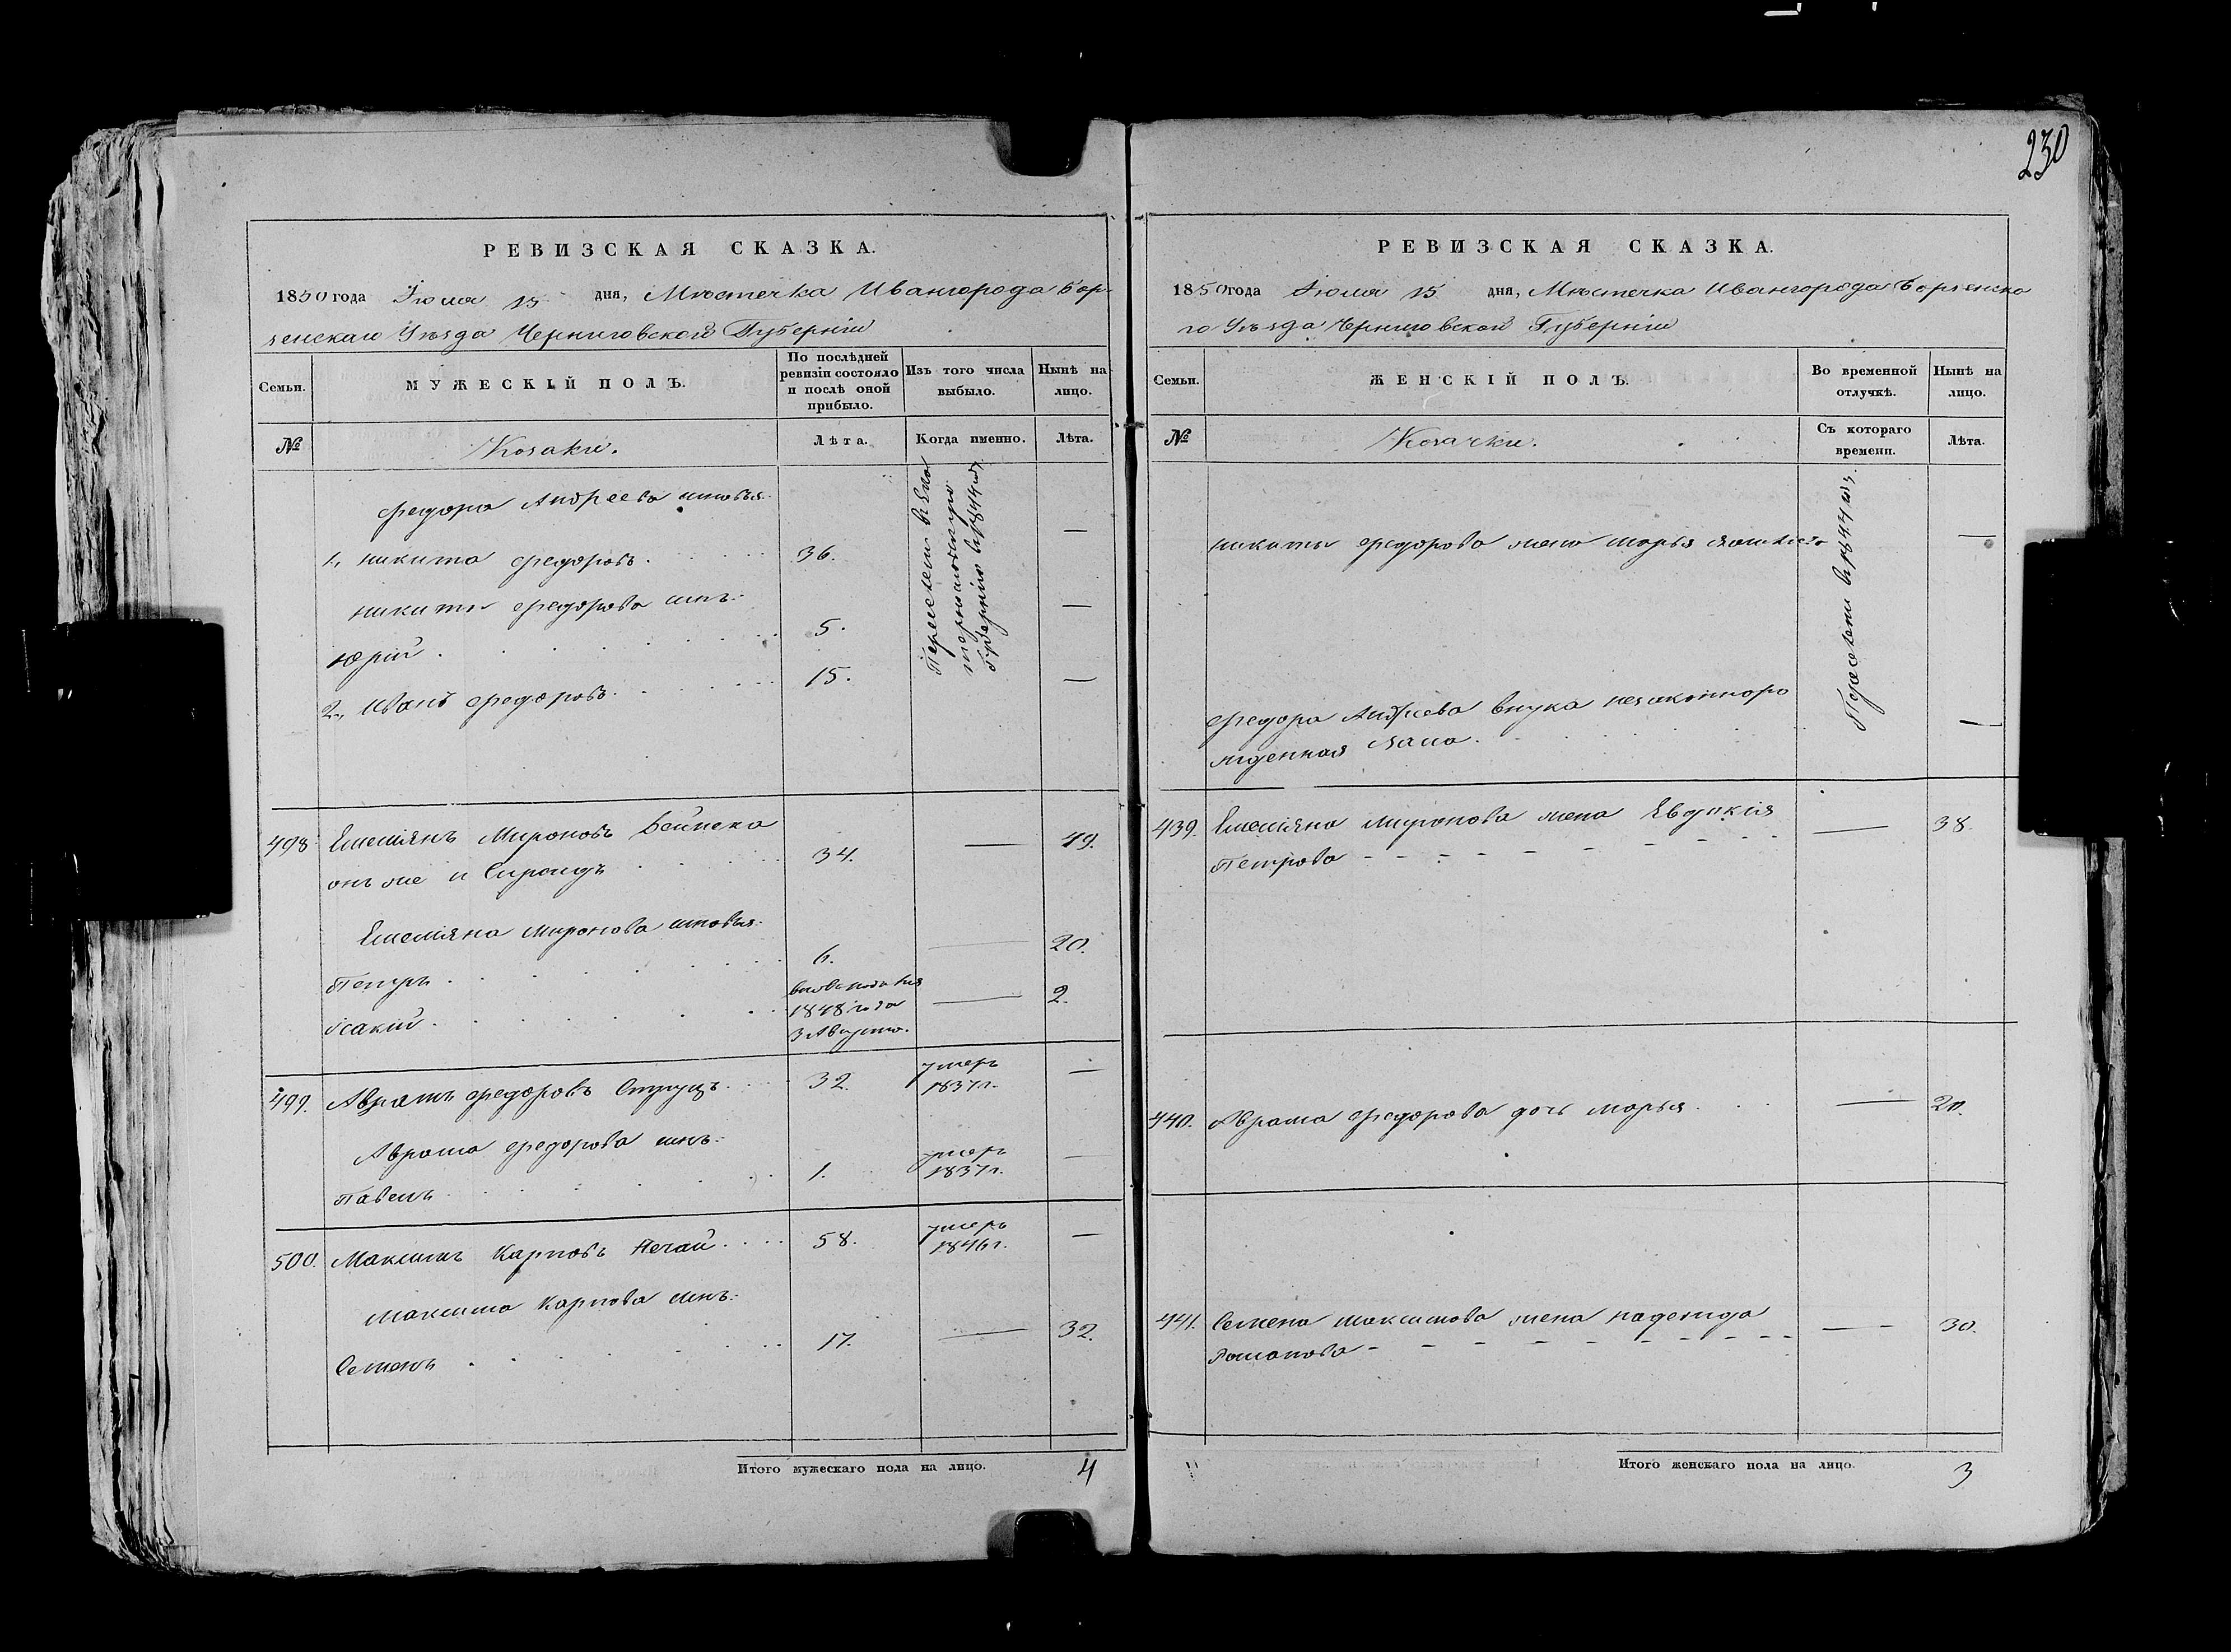 230
РЕВИЗСКАЯ СКАЗКА.
1850 года Іюля 15 дня, Мѣстечка Ивангорода Бор-
зенскаго Уѣзда Черниговской Губерніи
Семьи.
МУЖЕСКІЙ ПОЛЪ.
По послѣдней ревизіи состояло и послѣ оной прибыло.
Изъ того числа выбыло.
Нынѣ на лицо.
№
Козаки.
Лѣта.
Когда именно.
Лѣта.
Федора Андреева сыновья:
1., Никита Федоровъ. 36. —
Никиты Федорова сынъ:
Юрій 5. —
2., Иванъ Федоровъ. 15. —
Переселены въ
Губернію въ 1844 году
498 Емеліянъ Мироновъ
онъ же и 34. — 49.
Емеліяна Миронова сыновья:
Петръ 6. — 20.
Ісакій 1848 года 3 Августа. — 2.
499. Аврамъ Федоровъ 32. умеръ 1837 г. —
Аврама Федорова сынъ:
Павелъ 1. умеръ 1837 г. —
500. Максимъ Карповъ Нечай 58. умеръ 1846 г. —
Максима Карпова сынъ:
Семенъ 17. — 32.
Итого мужескаго пола на лицо. 4
РЕВИЗСКАЯ СКАЗКА.
1850 года Іюля 15 дня, Мѣстечка Ивангорода Борзенска
го Уѣзда Черниговской Губерніи
Семьи.
ЖЕНСКІЙ ПОЛЪ.
Во временной отлучкѣ.
Нынѣ на лицо.
№
Козачки.
Съ котораго времени.
Лѣта.
Никиты Федорова жена Марья —
Федора Андреева внука незаконноро
жденная —
Переселены въ 1844 году
439. Емеліяна Миронова жена Евдокія
Петрова — 38.
440. Аврама Федорова дочь Марья — 20.
441. Семена Максимова жена Надежда
Романова — 30.
Итого женскаго пола на лицо. 3